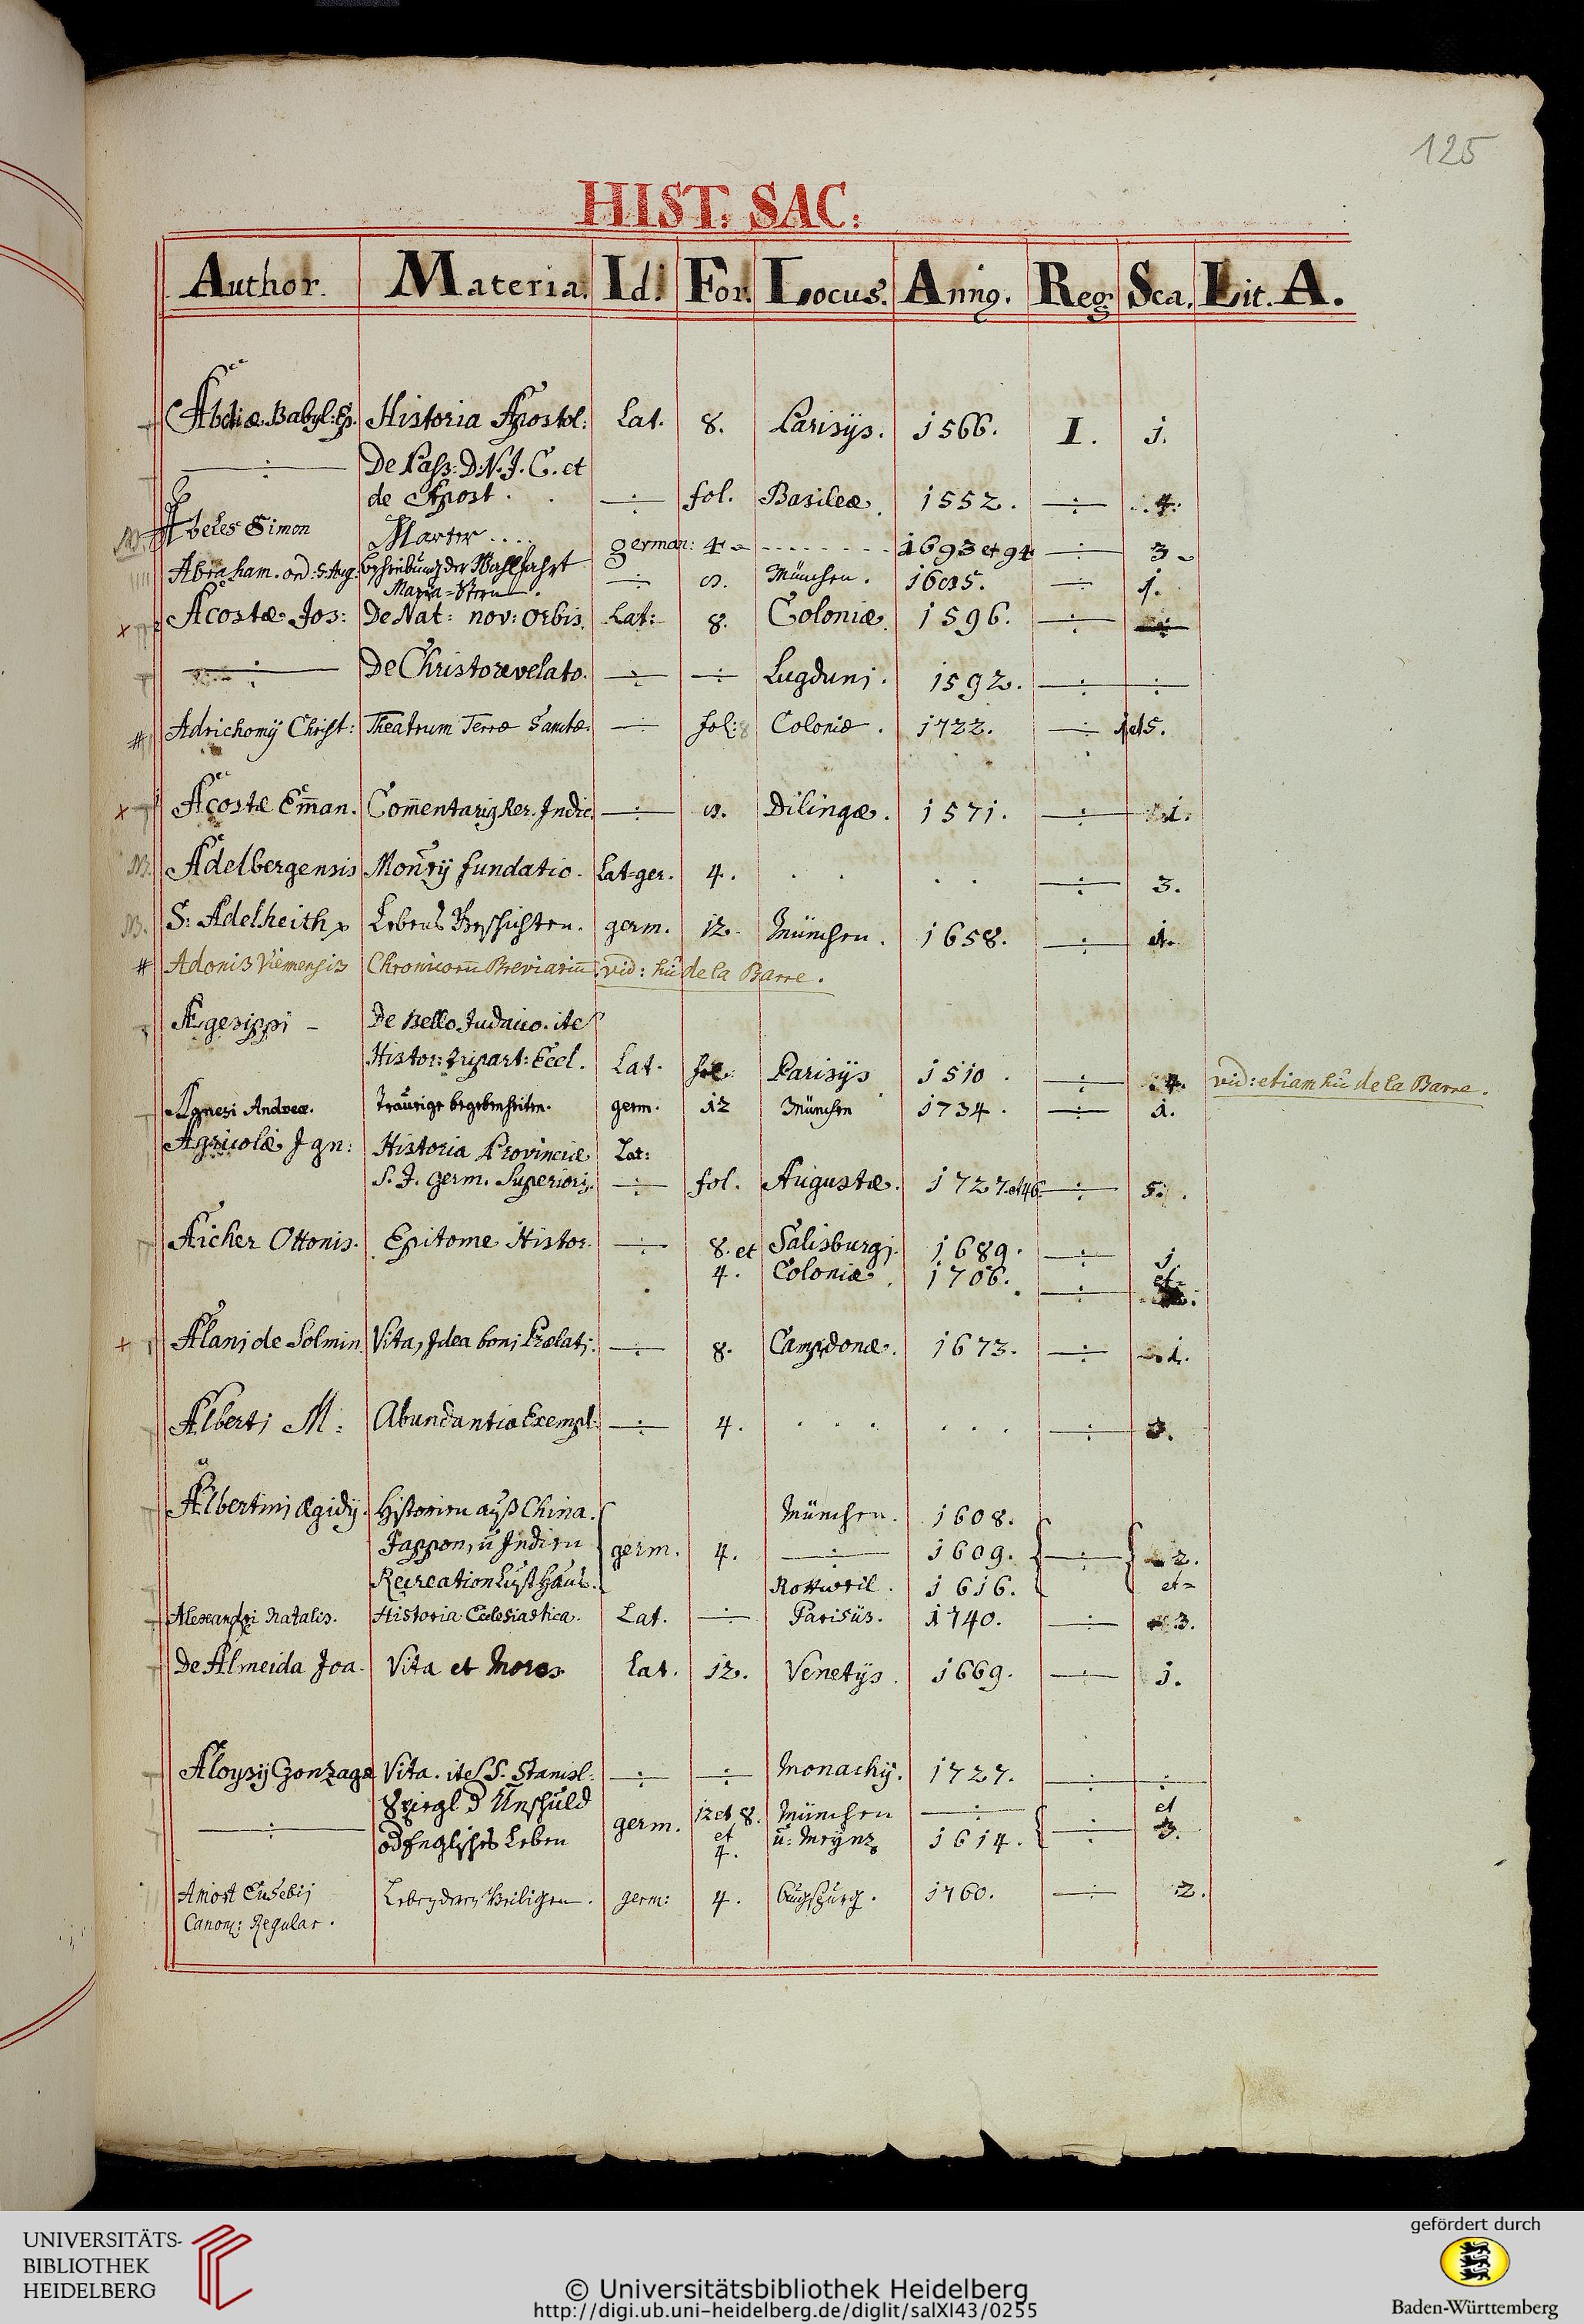 125
HIST: SAC:
Author. Materia. Id: For. Locus. Anno. Reg. Sca. Lit. A.
Abdiæ Babyl: Ep. Historia Apostol: Lat. 8. Parisijs. 1566. I. 1.
÷ De Pass: D. N. J. C. et
de Apost. ÷ fol. Basileæ. 1552. ÷ 4.
Abeles Simon Marter .... german: 4 - ........ 1693 et 94 ÷ 3 -
Abraham. ord. S. Aug. beschreibung der Wahlfahrt
Maria=Stern. ÷ 8. München. 1605. ÷ 1.
Acostæ Jos: De Nat: nov: Orbis. Lat: 8. Coloniæ. 1596. ÷
÷ De Christo revelato. ÷ ÷ Lugduni. 1592. ÷ ÷
Adrichomij Christ: Theatrum Terræ Sanctæ. ÷ fol: Coloniæ. 1722. ÷ 1 et 5.
Acostæ Em̄an. Com̄entarig Rer. Indic. ÷ 8. Dilingæ. 1571. ÷ 1.
Adelbergensis Monrij fundatio. Lat=ger. 4. . . . . ÷ 3.
S: Adelheith Lebens Geschichten. germ. 12. München. 1658. ÷ 1.
# Adonis Viemensis Chronicorū Breviariū. vid: hīc de la Barre.
Ægesippi - De Bello Judaico. ite
Histor: tripart: Eccl. Lat. fol. Parisijs 1510. ÷ 4. vid: etiam hīc de la Barre.
Agnesi Andreæ. Traurige begebenheiten. germ. 12 München 1734. ÷ 1.
Agricolæ Ign: Historia Provinciæ Lat:
S. J. Germ. Superiorij. ÷ fol. Augustæ. 1727. et 46. ÷ 5.
Aicher Ottonis. Epitome Histor. ÷ 8. et Salisburgi. 1689. ÷ 1
4. Coloniæ. 1706. ÷ et
Alani de Solmin. Vita, Idea boni Prælati. ÷ 8. Campidonæ. 1673. ÷ 1.
Alberti M: Abundantia Exempl: ÷ 4. . . . . . . ÷ 3.
Albertini Ægidij. Historien auß China. München. 1608.
Jappon, ū Indien germ. 4. ÷ 1609. ÷ 2.
Recreation Lust Hauß. Rottweil. 1616. et=
Alexandri Natalis. Historia Ecclesiastica. Lat. ÷ Parisiis. 1740. ÷ 3.
De Almeida Joa. Vita et Mores Lat. 12. Venetijs. 1669. ÷ 1.
Aloysij Gonzagæ Vita. ite S. Stanisl: ÷ ÷ Monachij. 1727. ÷ ÷
Spiegl d Unschuld 12 et 8. München ÷ et
÷ od Englisches Leben germ. et u: Meÿnz 1614. ÷ 3.
4.
Amort Eusebij Leben der Heiligen. germ: 4. Augspurg. 1760. ÷ 2.
Canon: Regular.
UNIVERSITÄTS-
BIBLIOTHEK
HEIDELBERG
© Universitätsbibliothek Heidelberg
http://digi.ub.uni-heidelberg.de/diglit/salXI43/0255
gefördert durch
Baden-Württemberg